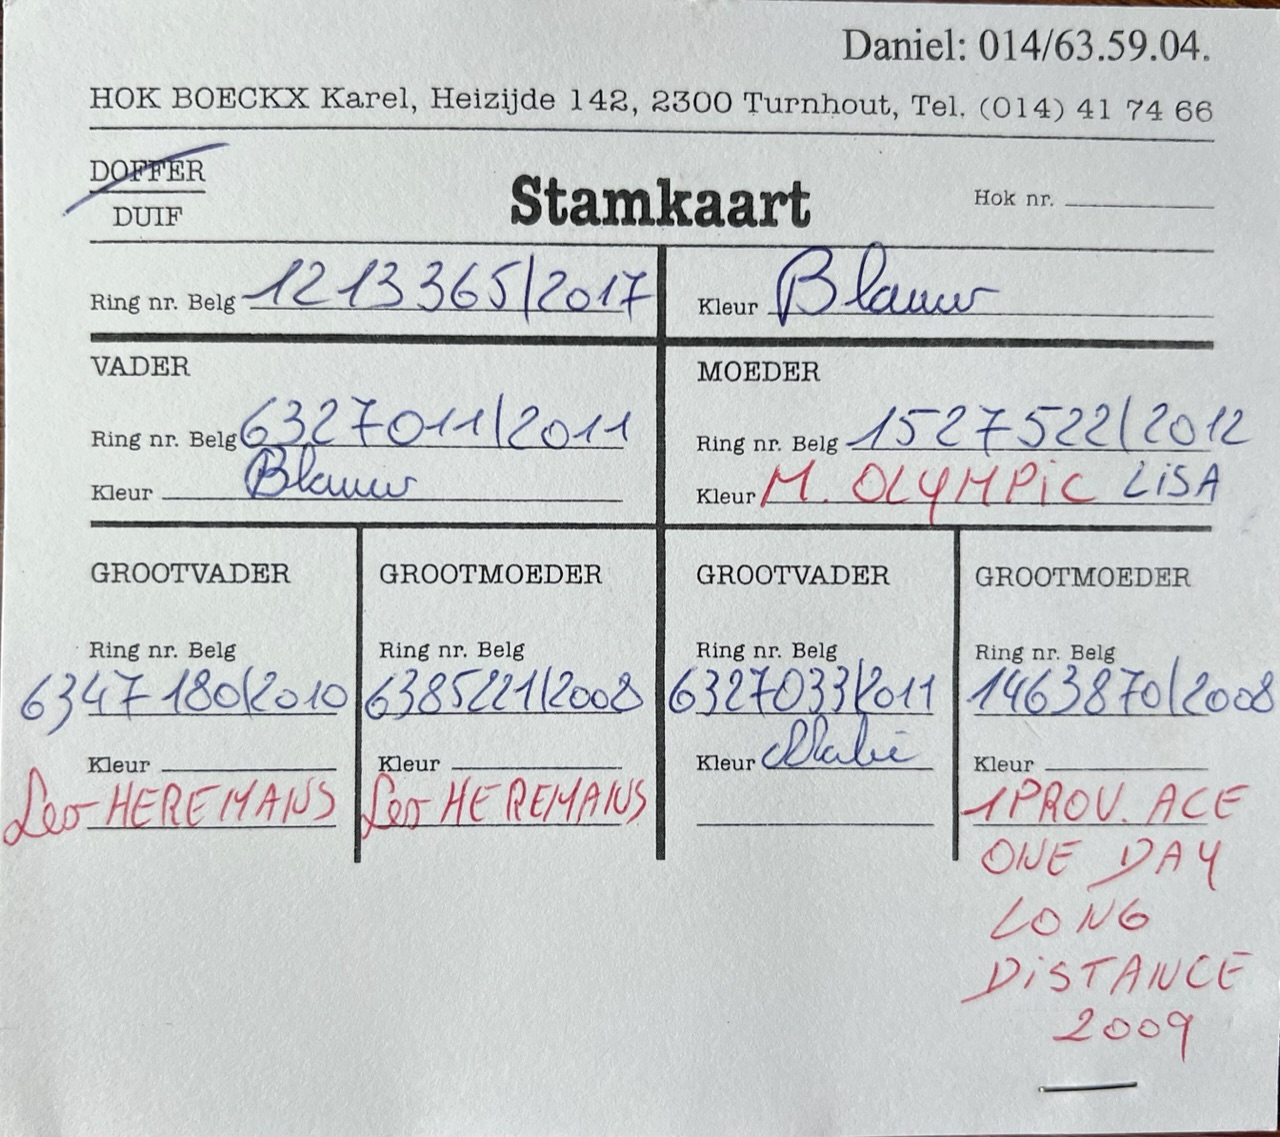 Daniel: 014/63.59.04.
HOK BOECKX Karel, Heizijde 142, 2300 Turnhout, Tel. (014) 41 74 66
DOFFER
DUIF
Stamkaart
Hok nr.
Ring nr. Belg 1213365/2017
Kleur Blauw
VADER
Ring nr. Belg 6327011/2011
Kleur Blauw
MOEDER
Ring nr. Belg 1527522/2012
Kleur M. OLYMPiC LiSA
GROOTVADER
Ring nr. Belg
6347180/2010
Kleur
Leo HEREMANS
GROOTMOEDER
Ring nr. Belg
6385221/2008
Kleur
Leo HEREMANS
GROOTVADER
Ring nr. Belg
6327033/2011
Kleur
GROOTMOEDER
Ring nr. Belg
1463870/2008
Kleur
1PROV. ACE
ONE DAY
LONG
DiSTANCE
2009